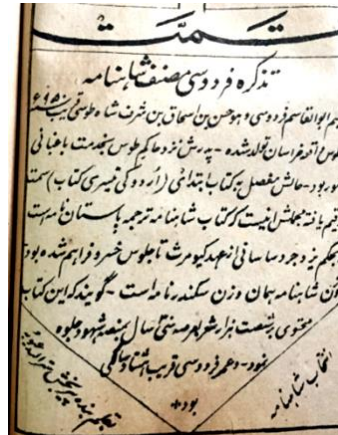 تمت
تذکرہ فردوسی مصنف شاہنامہ
ابوالقاسم فردوسی و ہو حسن بن اسحاق بن شرف شاہ طوسی قریب
طوس خراسان تولد شدہ - پدرش نزد حاکم طوس بخدمت باغبانی
بود - حالش مفصل بر کتاب ابتدائی (اُردو کی تیسری کتاب) سمت
رقم یافتہ مجملش اینست کہ کتاب شاہنامہ ترجمہ باستان نامہ است
بحکم یزدجرد ساسانی از عہد کیومرث تا جلوس خسرو فراہم شدہ بود
وزن شاہنامہ ہمان وزن سکندر نامہ است - گویند کہ این کتاب
محتوی بر شصت ہزار شعر بعرصہ سی سال بمنصہ شہود جلوہ
نمود - و عمر فردوسی قریب ہشتاد سالگی
بود
انتخاب شاہنامہ